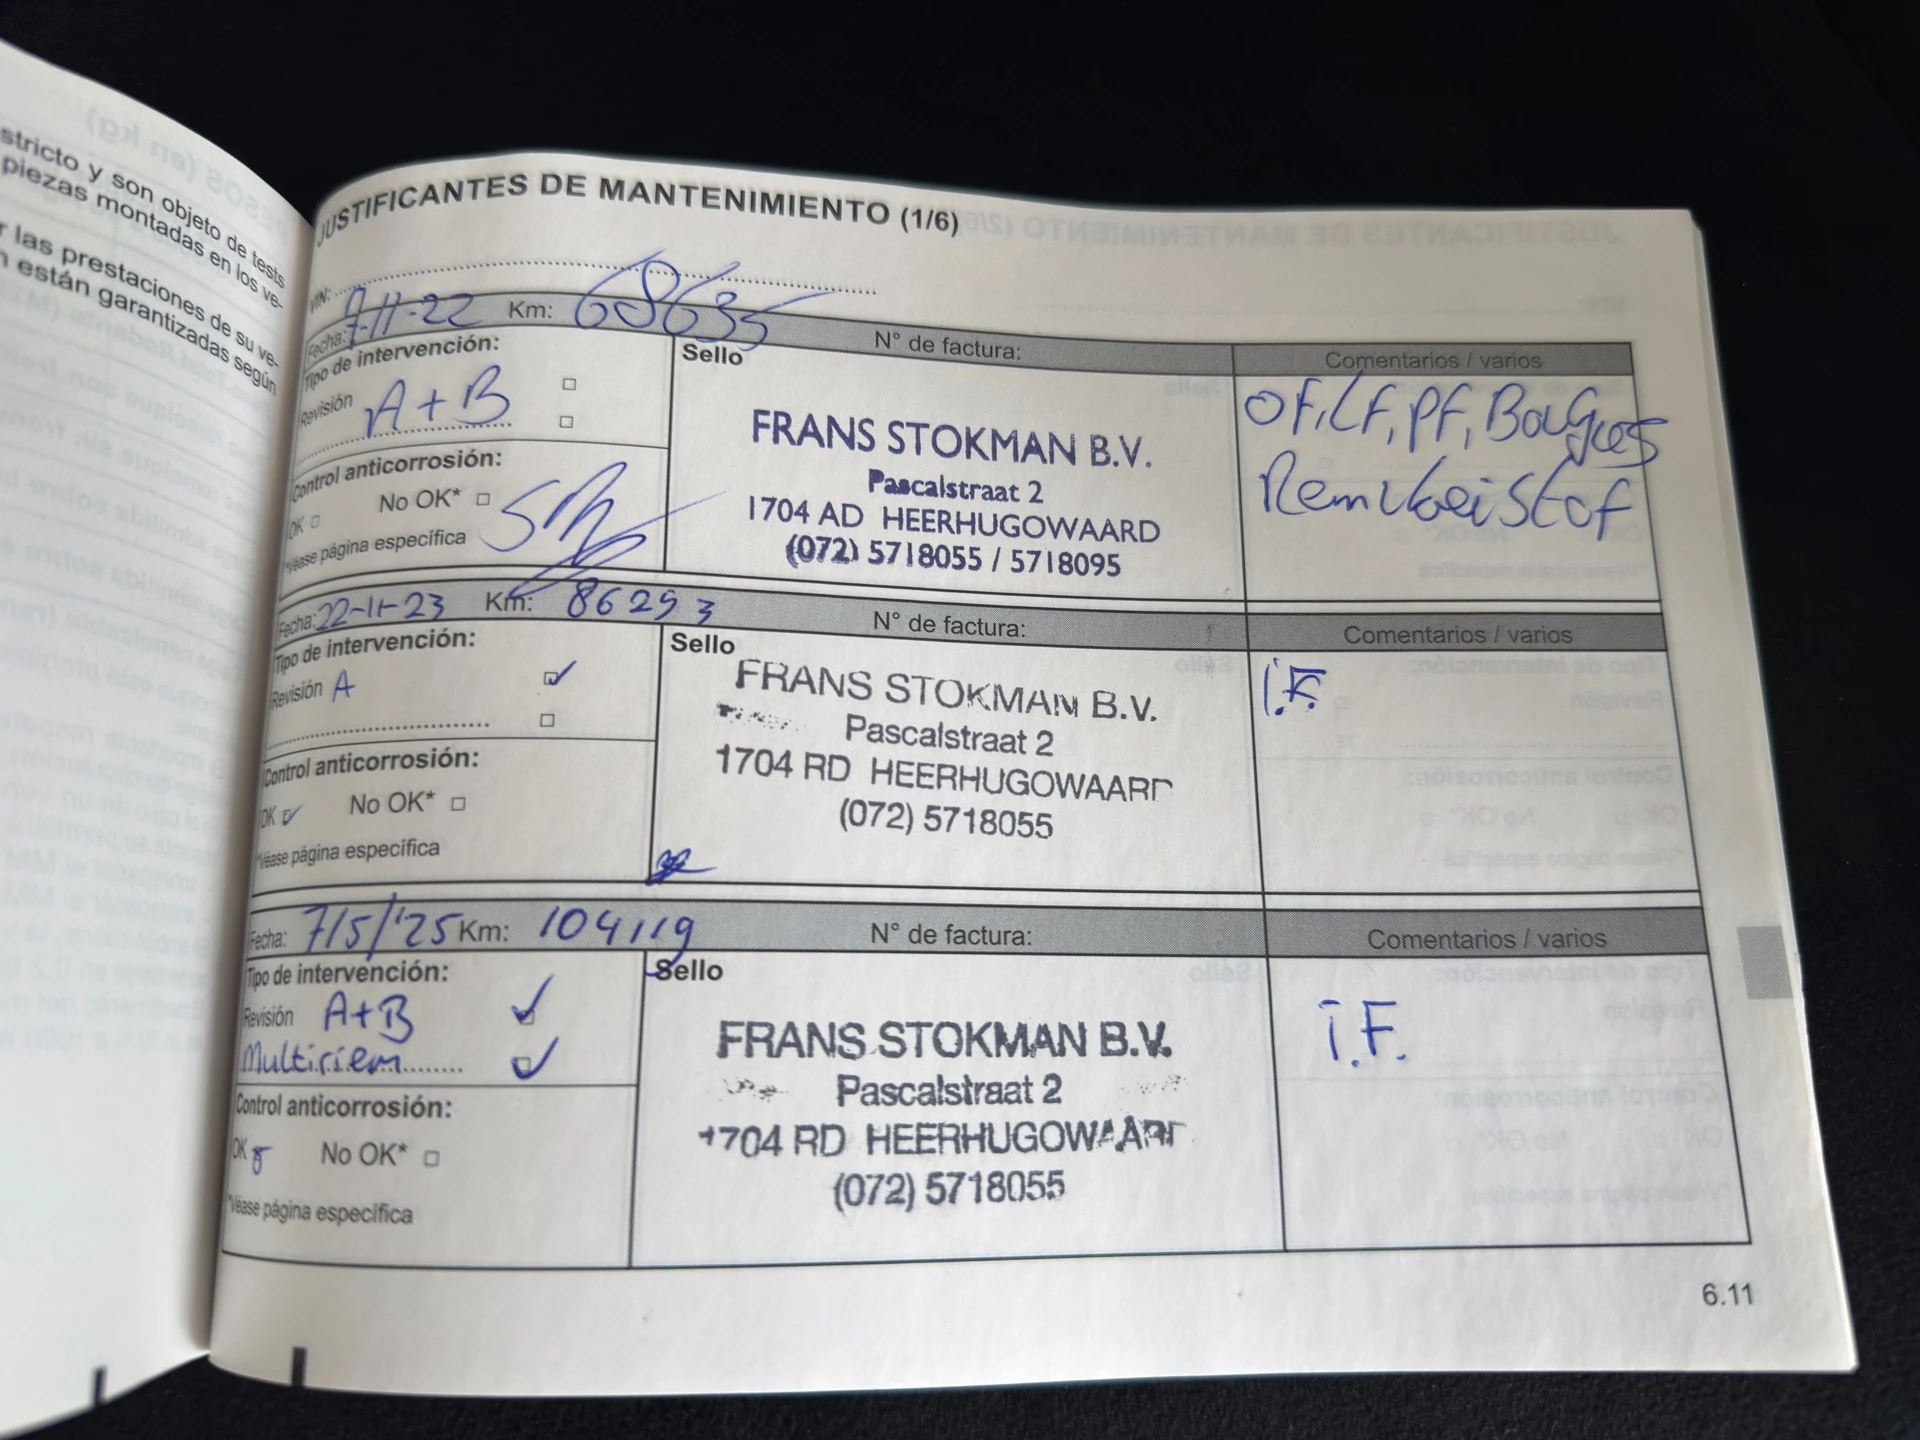 stricto y son objeto de tests
piezas montadas en los ve-
r las prestaciones de su ve-
n están garantizadas según
JUSTIFICANTES DE MANTENIMIENTO (1/6)
VIN:
Fecha: 7-11-22 Km: 68635 N° de factura: Comentarios / varios
Tipo de intervención:
Revisión A+B
Control anticorrosión:
OK No OK*
*Véase página específica
Sello
FRANS STOKMAN B.V.
Pascalstraat 2
1704 AD HEERHUGOWAARD
(072) 5718055 / 5718095
OF, LF, PF, Bougies
Remvloeistof
Fecha: 22-11-23 Km: 86293 N° de factura: Comentarios / varios
Tipo de intervención:
Revisión A
Control anticorrosión:
OK No OK*
*Véase página específica
Sello
FRANS STOKMAN B.V.
Pascalstraat 2
1704 RD HEERHUGOWAARD
(072) 5718055
i.F.
Fecha: 7/5/'25 Km: 104119 N° de factura: Comentarios / varios
Tipo de intervención:
Revisión A+B
Multiriem
Control anticorrosión:
OK No OK*
*Véase página específica
Sello
FRANS STOKMAN B.V.
Pascalstraat 2
1704 RD HEERHUGOWAARD
(072) 5718055
i.F.
6.11